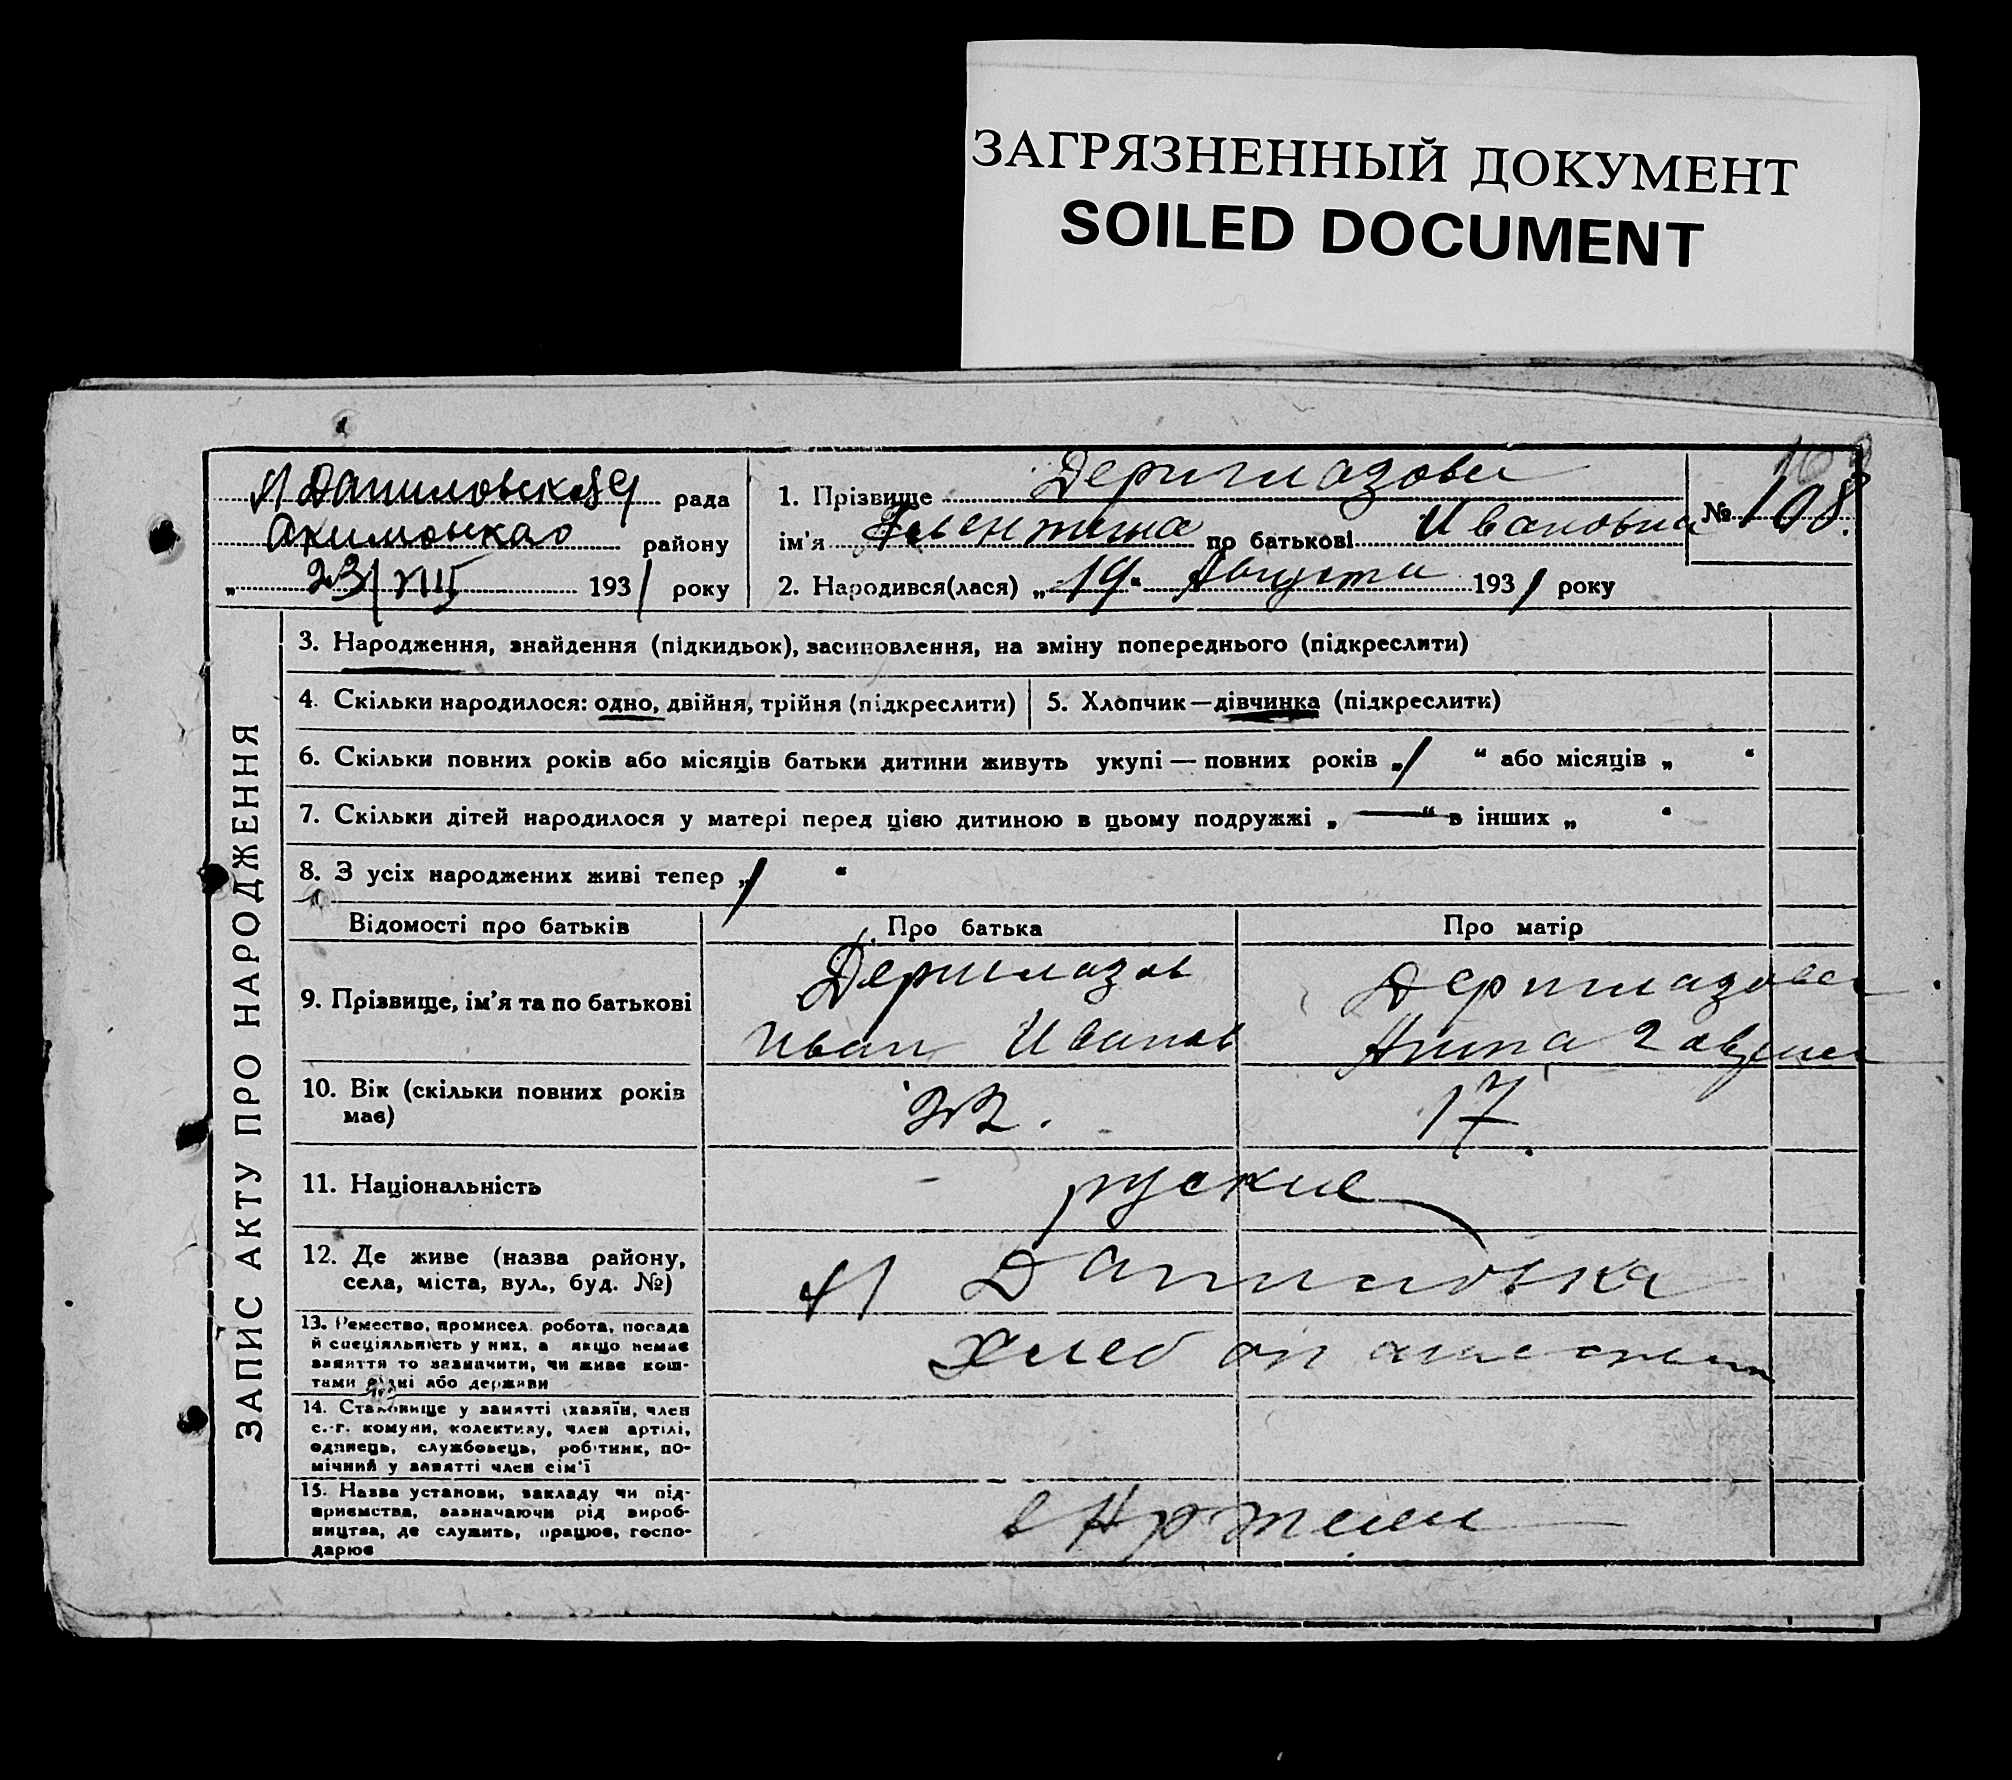 ЗАГРЯЗНЕННЫЙ ДОКУМЕНТ
SOILED DOCUMENT
Н Даниловская рада
району
„ 23/VIII 1931 року
1. Прізвище Деримазова
№ 108
ім'я по батькові Ивановна
2. Народився(лася) „19“ Августа 1931 року
ЗАПИС АКТУ ПРО НАРОДЖЕННЯ
3. Народження, знайдення (підкидьок), засиновлення, на зміну попереднього (підкреслити)
4. Скільки народилося: одно, двійня, трійня (підкреслити)
5. Хлопчик — дівчинка (підкреслити)
6. Скільки повних років або місяців батьки дитини живуть укупі — повних років „1 “ або місяців „ “
7. Скільки дітей народилося у матері перед цією дитиною в цьому подружжі „ — “ в інших „ “
8. З усіх народжених живі тепер „1 “
Відомості про батьків Про батька Про матір
9. Прізвище, ім'я та по батькові
Деримазов
Иван Иванов
Деримазова
Анна
10. Вік (скільки повних років має)
22.
17.
11. Національність
руские
12. Де живе (назва району, села, міста, вул., буд. №)
Н Даниловка
13. Ремество, промисел. робота, посада
й спеціяльність у них, а якщо немає
заняття то зазначити, чи живе кош-
тами рідні або держави
14. Становище у занятті (хазяїн, член
с.-г. комуни, колективу, член артілі,
одинець, службовець, робітник, по-
мічний у занятті член сім'ї
15. Назва установи, закладу чи під-
приємства, зазначаючи рід вироб-
ництва, де служить, працює, госпо-
дарює
в Артели